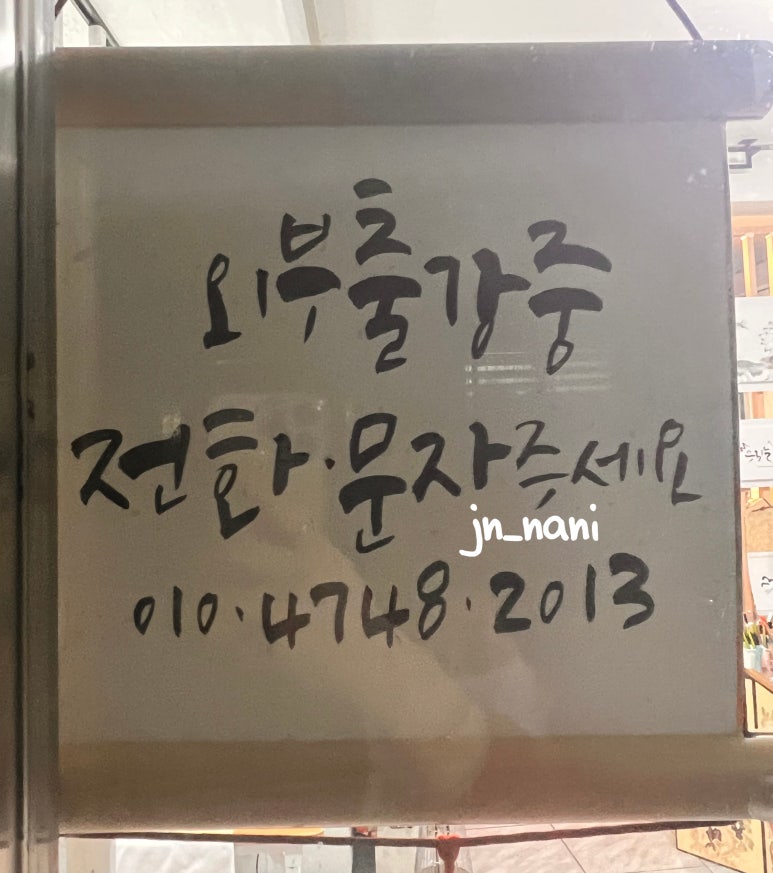 외부출강중
전화·문자주세요
jn_nani
010·4748·2013